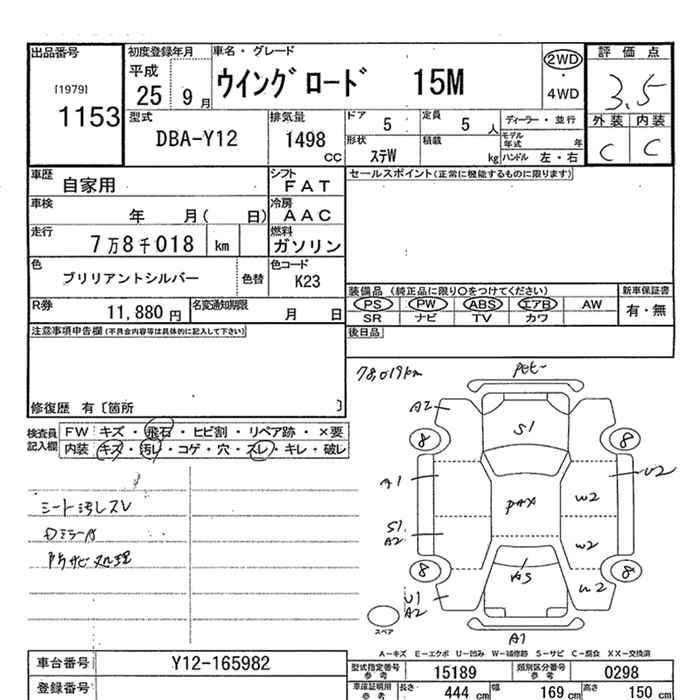 出品番号
[1979]
1153
初度登録年月
平成
25 9 月
車名・グレード
ウイングロード 15M
2WD
・
4WD
評価点
3.5
外装 内装
C C
型式
DBA-Y12
排気量
1498
CC
ドア
5
定員
5 人
ディーラー・並行
モデル年式 年
形状
ステW
積載
kg
ハンドル 左・右
車歴
自家用
シフト
FAT
車検
年 月( 日)
冷房
AAC
走行
7万8千018 km
燃料
ガソリン
色
ブリリアントシルバー
色替
色コード
K23
R券
11,880 円
名変通知期限
月 日
セールスポイント(正常に機能するものに限ります)
装備品 (純正品に限り〇をつけてください)
新車保証書
PS PW ABS エアB AW
有・無
SR ナビ TV カワ
後日品
注意事項申告欄(不具合内容等は具体的に記入して下さい)
修復歴 有〔箇所 〕
検査員記入欄
FW キズ・飛石・ヒビ割・リペア跡・×要
内装 キズ・汚レ・コゲ・穴・スレ・キレ・破レ
シート汚レスレ
防サビ処理
78,019km
A2
S1
8
8
A1
U2
W2
S1
A2
W2
8
8
U1
A2
U2
A1
スペア
A-キズ E-エクボ U-凹み W-補修跡 S-サビ C-腐食 XX-交換済
車台番号
Y12-165982
登録番号
型式指定番号
15189
類別区分番号
0298
車庫証明用
参考
長さ
444 cm
幅
169 cm
高さ
150 cm